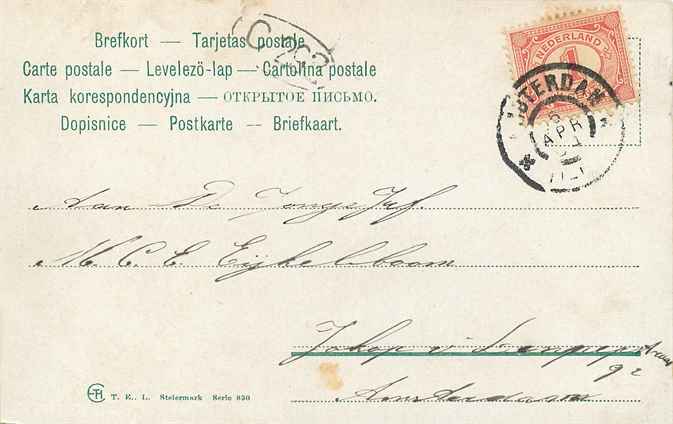 Brefkort — Tarjetas postale
Carte postale — Levelezö-lap — Cartolina postale
Karta korespondencyjna — ОТКРЫТОЕ ПИСЬМО.
Dopisnice — Postkarte — Briefkaart.
NEDERLAND
1
AMSTERDAM
APR
Aan De Jongej Juf.
M. C. E. Eijkelboom
Jakop v
92
Amsterdam
T. E. L. Steiermark Serie 830